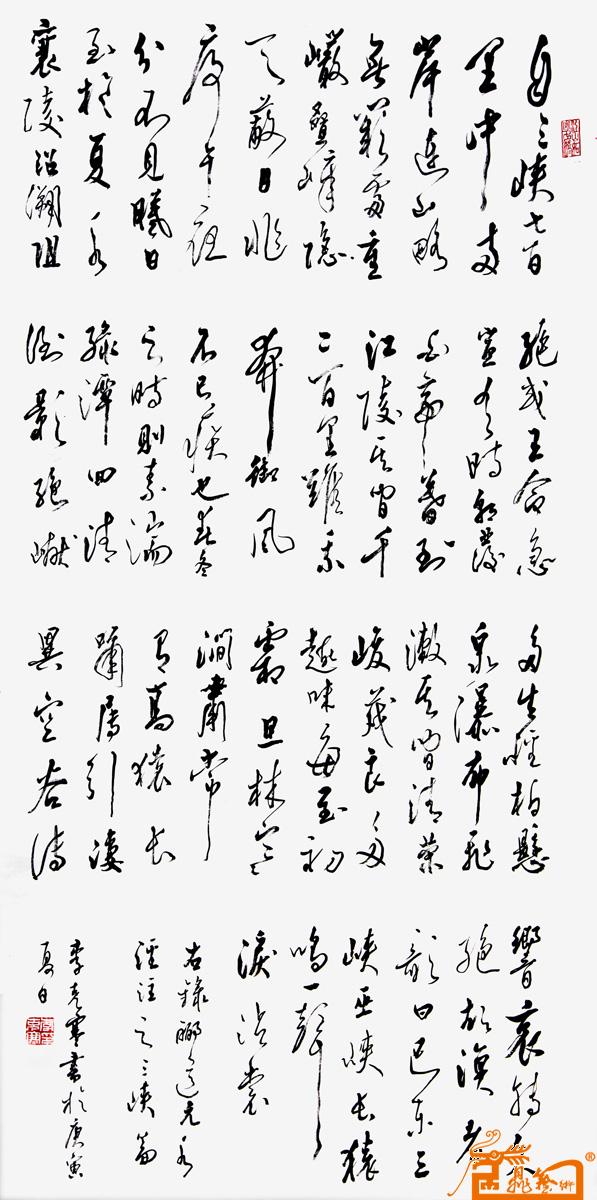 自三峡七百
里中〃两
岸連山略
無闕處重
巖疊嶂隐
天蔽日非
亭午夜
分不見曦日
至於夏水
襄陵沿溯阻
絶或王命急
宣有時朝發
白帝暮到
江陵其间千
二百里雖乘
奔御風
不已疾也春冬
之時則素湍
緑潭回清
倒影绝巘
多生怪柏懸
泉瀑布飛
漱其间清榮
峻茂良〃多
趣味每至初
霜旦林寒
澗肅常
有高猿长
嘯屬引凄
異空谷傳
響哀轉久
絶故漁者
歌曰巴東三
峡巫峡长猿
鳴一聲
淚沾裳
右錄酈道元水
經注之三峡篇
李克書於庚寅
夏日